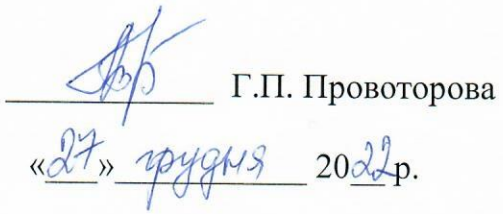 Г.П. Провоторова
«27» грудня 2022 р.